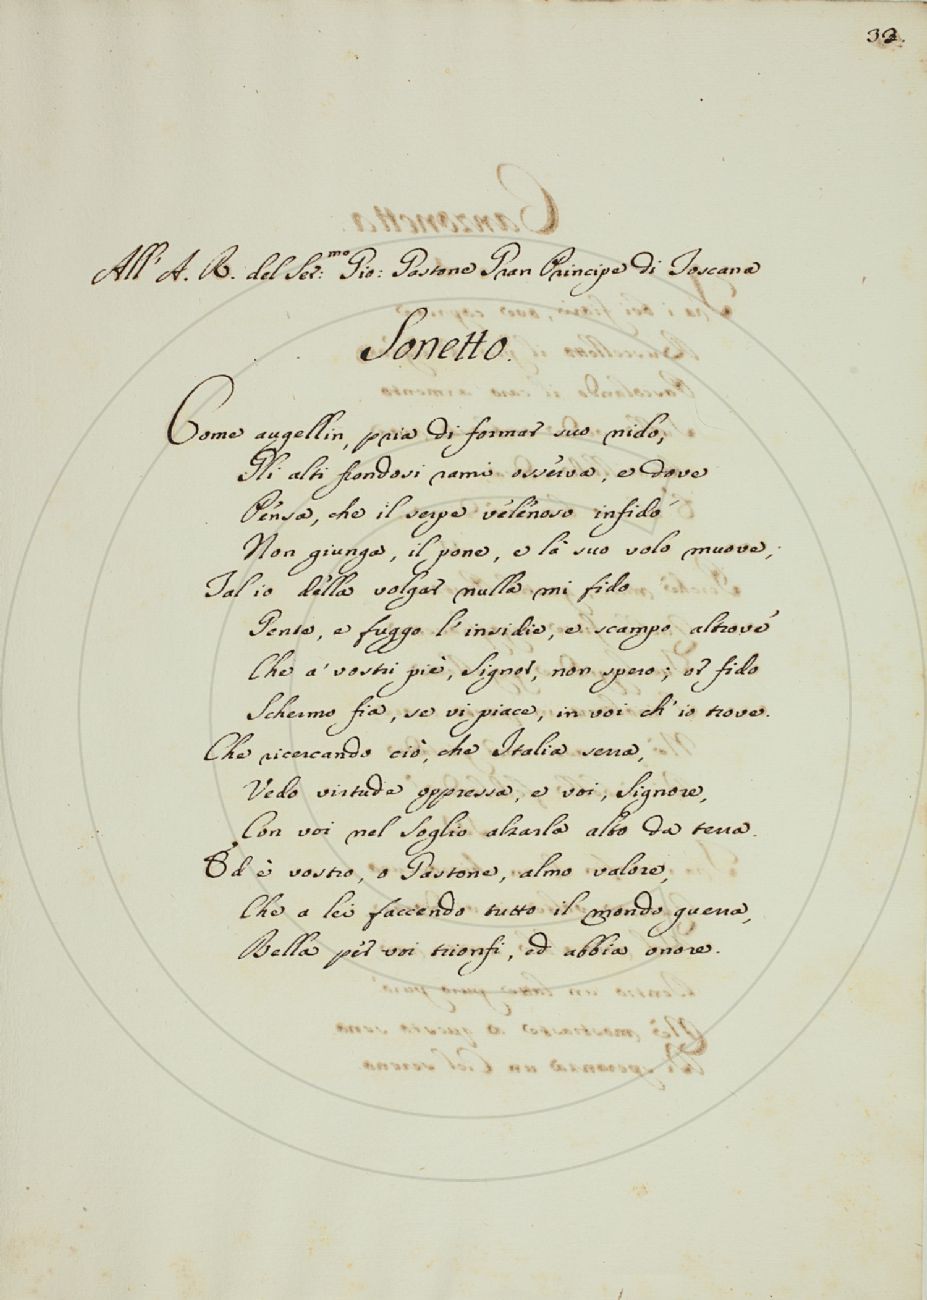 39.
All' A. R. del Ser:mo Gio: Gastone Gran Principe di Toscana
Sonetto.
Come augellin, pria di formar suo nido,
Gli alti frondosi rami osserva, e dove
Pensa, che il serpe velenoso infido
Non giunga, il pone, e là suo volo muove;
Tal io della volgar nulla mi fido
Gente, e fuggo l'insidie, e scampo altrove
Che a' vostri piè, Signor, non spero; or fido
Schermo fia, se vi piace, in voi ch'io trove.
Che ricercando ciò, che Italia serra,
Vedo virtude oppressa, e voi, Signore,
Con voi nel Soglio alzarla alto da terra.
Ed è vostro, o Gastone, almo valore,
Che a lei faccendo tutto il mondo guerra,
Bella per voi trionfi, ed abbia onore.